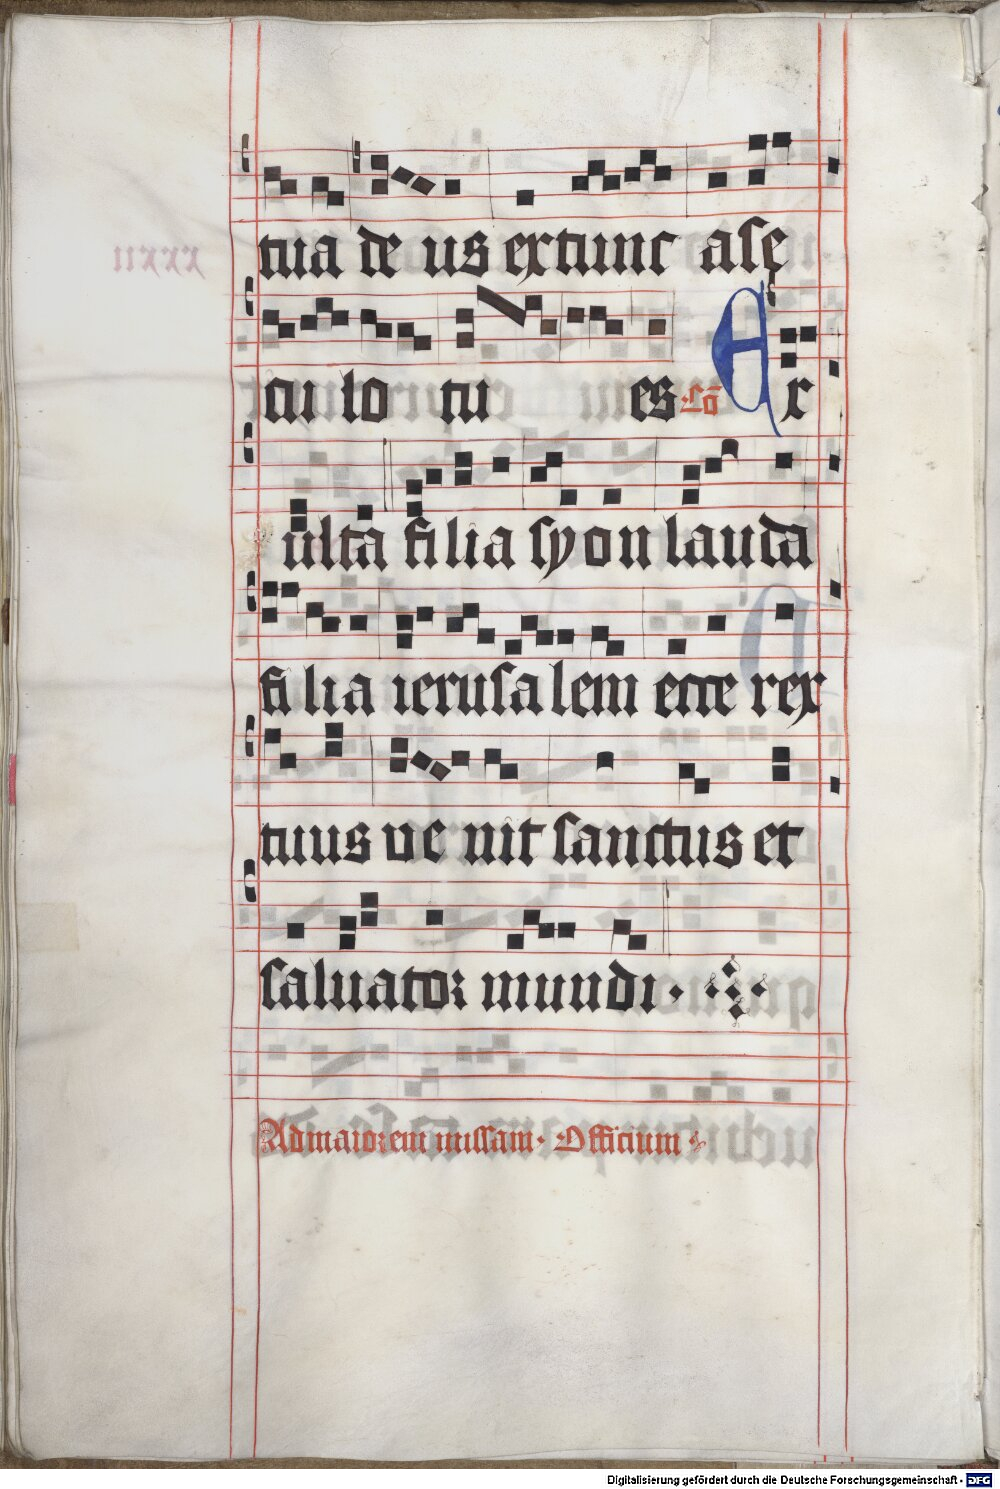 tua de us ex tunc a se
cu lo tu es Cō Ex
ulta filia syon lauda
filia ierusalem ecce rex
tuus ve nit sanctus et
saluator mundi·
Ad maiorem missam· Officium
Digitalisierung gefördert durch die Deutsche Forschungsgemeinschaft - DFG